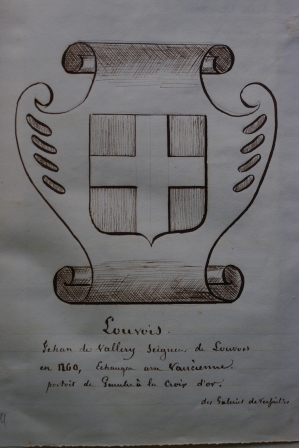 Louvois.
Jehan de Vallery Seigneur de Louvois
en 1260, Echangea avec Vancienne.
portoit de Gueule à la Croix d'or.
des Galeries de Versailles